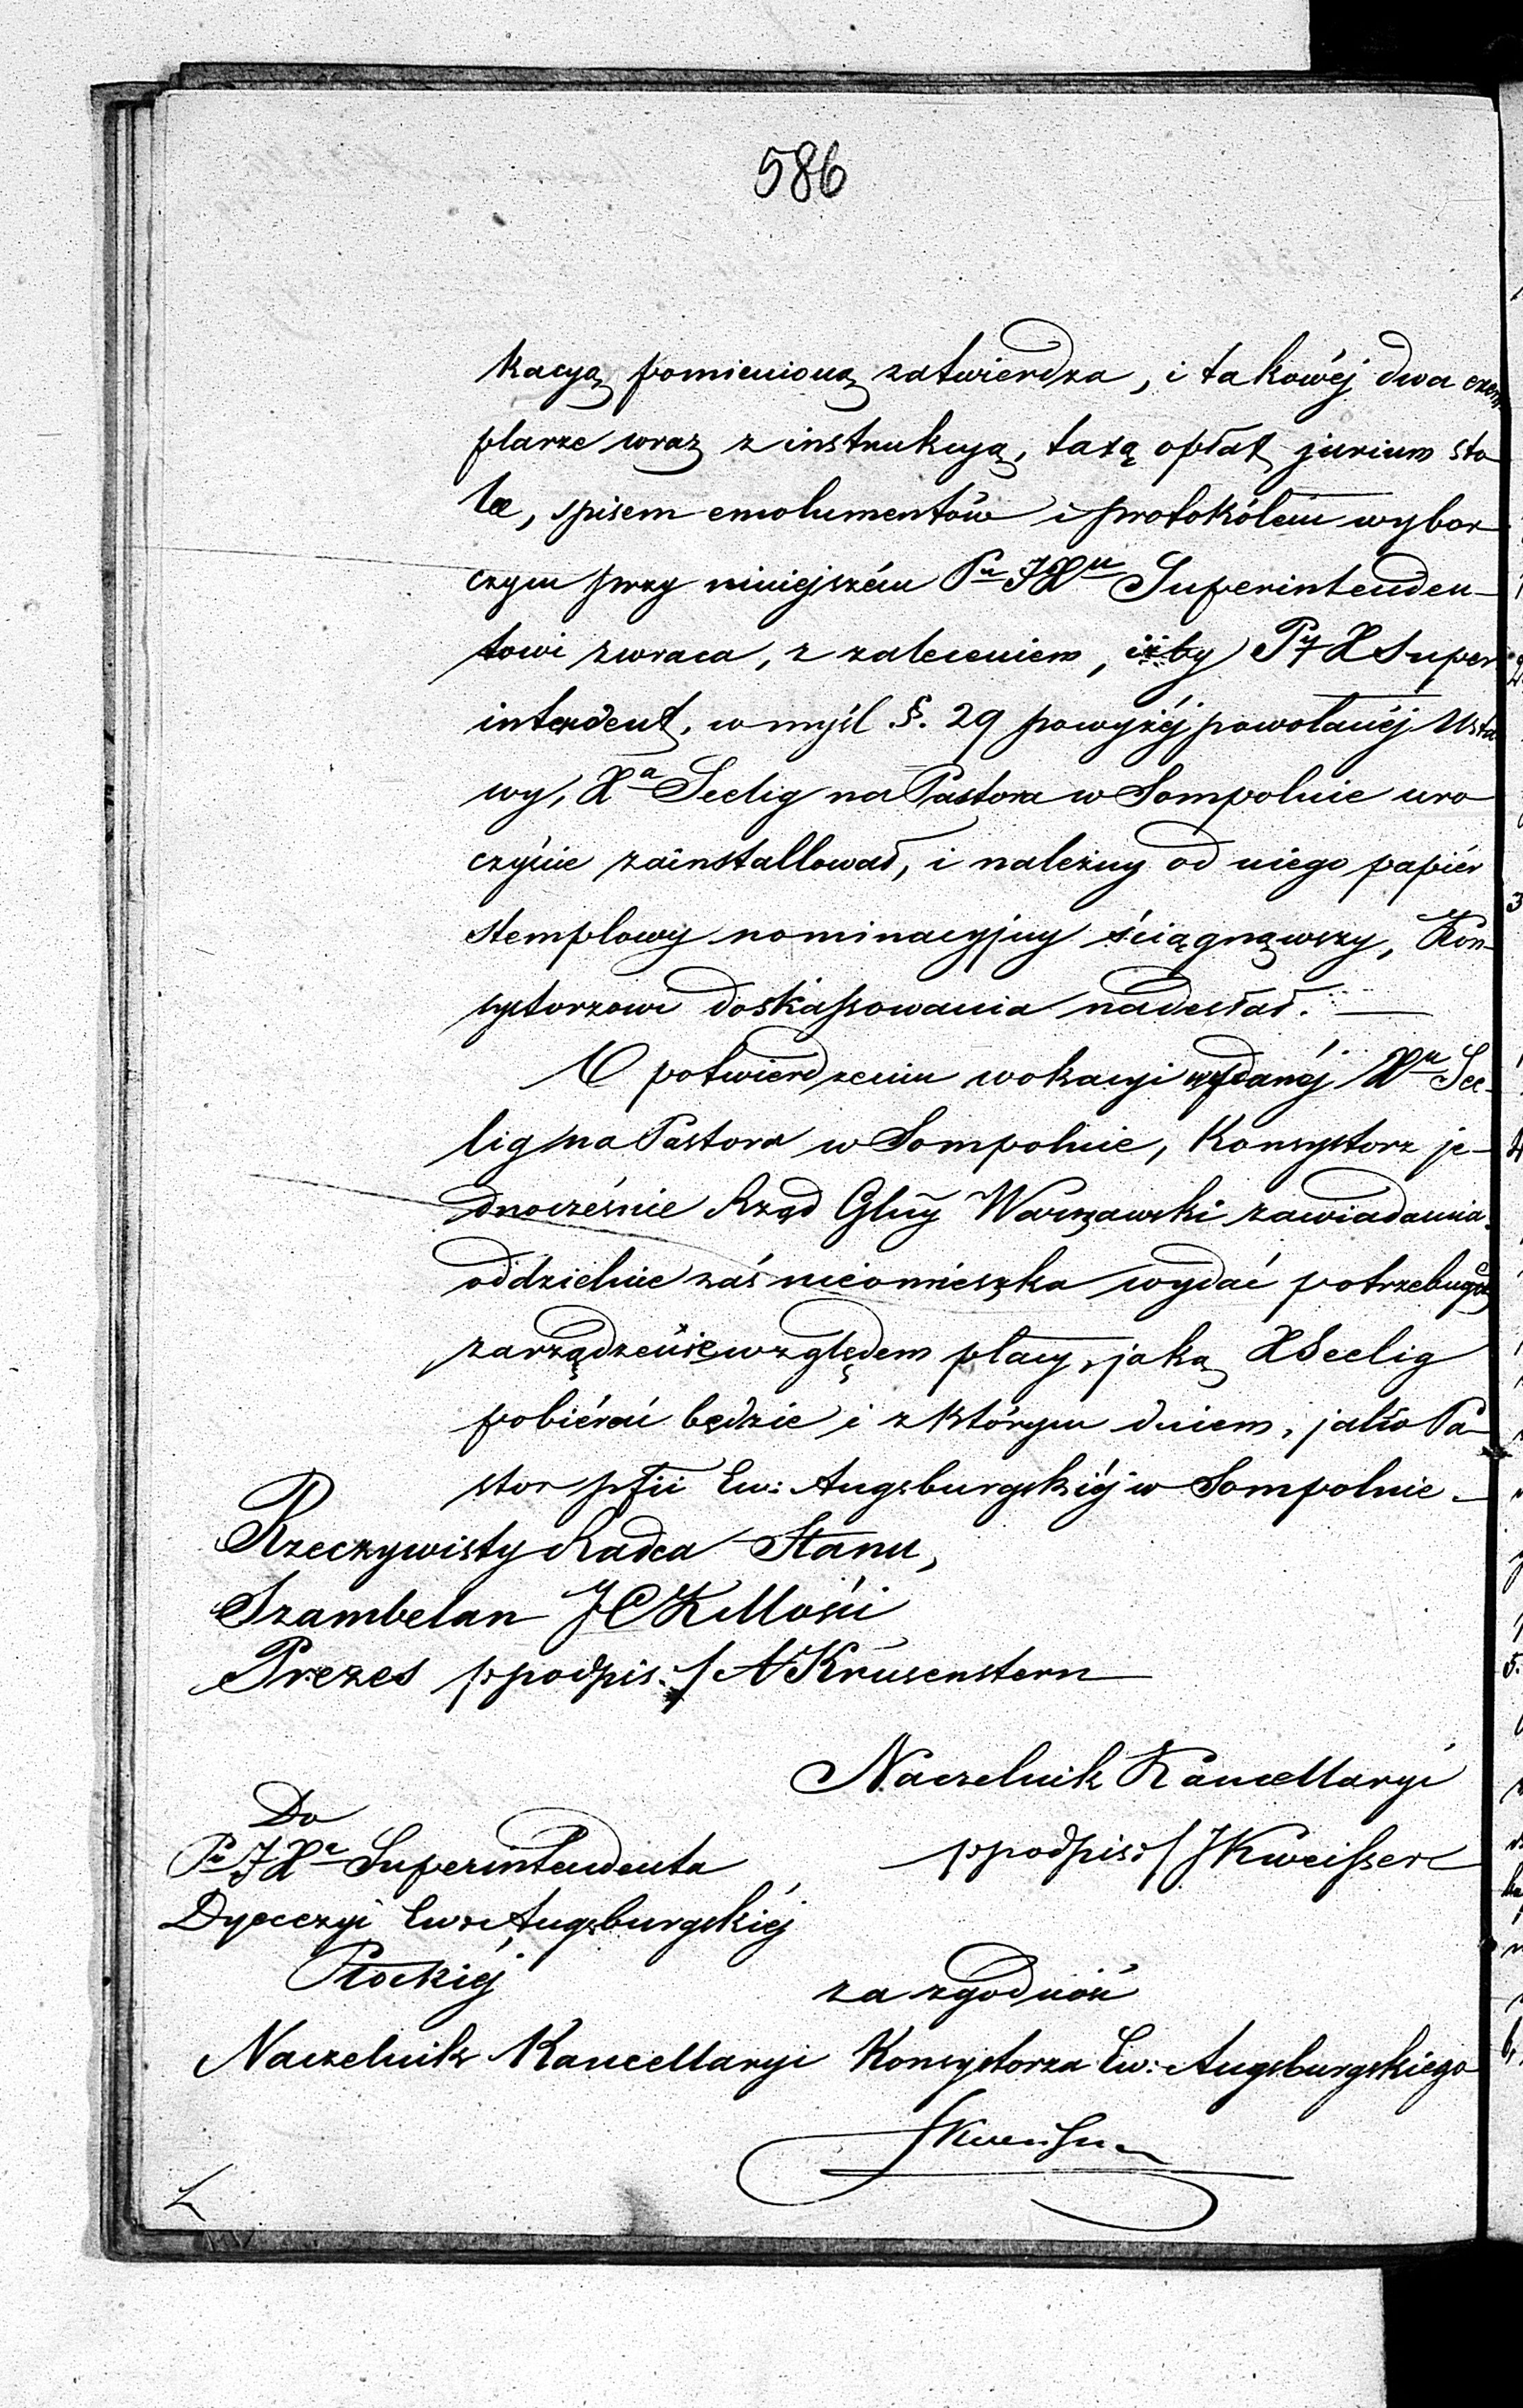 586
kacyą pomienioną zatwierdza, i takowéj dwa exem
plarze wraz z instrukcyą, taxą opłat jurium sto
lae, spisem emolumentów i protokółem wybor
czym przy niniejszém Pu JXu Superintenden-
towi zwraca, z zaleceniem, iżby P J X Super
intendent, w myśl §. 29 powyżéj powołanéj Usta
wy, Xa Seelig na Pastora w Sompolnie uro
czyście zainstallował, i należny od niego papiér
stemplowy nominacyjny ściągnąwszy, Kon-
systorzowi do skassowania nadesłał. —
O potwierdzeniu wokacyi wydanéj Xu See-
lig na Pastora w Sompolnie, Konsystorz je-
dnocześnie Rząd Glny Warszawski zawiadamia.
oddzielnie zaś nieomieszka wydać potrzebuące
zarządzenie względem płacy, jaką X Seelig
pobiérać będzie i z którym dniem, jako Pa-
stor pfii Ew: Augsburgskiéj w Sompolnie. —
Rzeczywisty Radca Stanu,
Szambelan JCKMości
Prezes /:podpis:/ A Krusenstern
Naczelnik Kancellaryi
/:podpis:/ J Kweisser
Do
Pa JXa Superintendenta
Dyecezyi Ew: Augsburgskiéj
Płockiéj
za zgodność
Naczelnik Kancellaryi Konsystorza Ew: Augsburgskiego
JKweisser